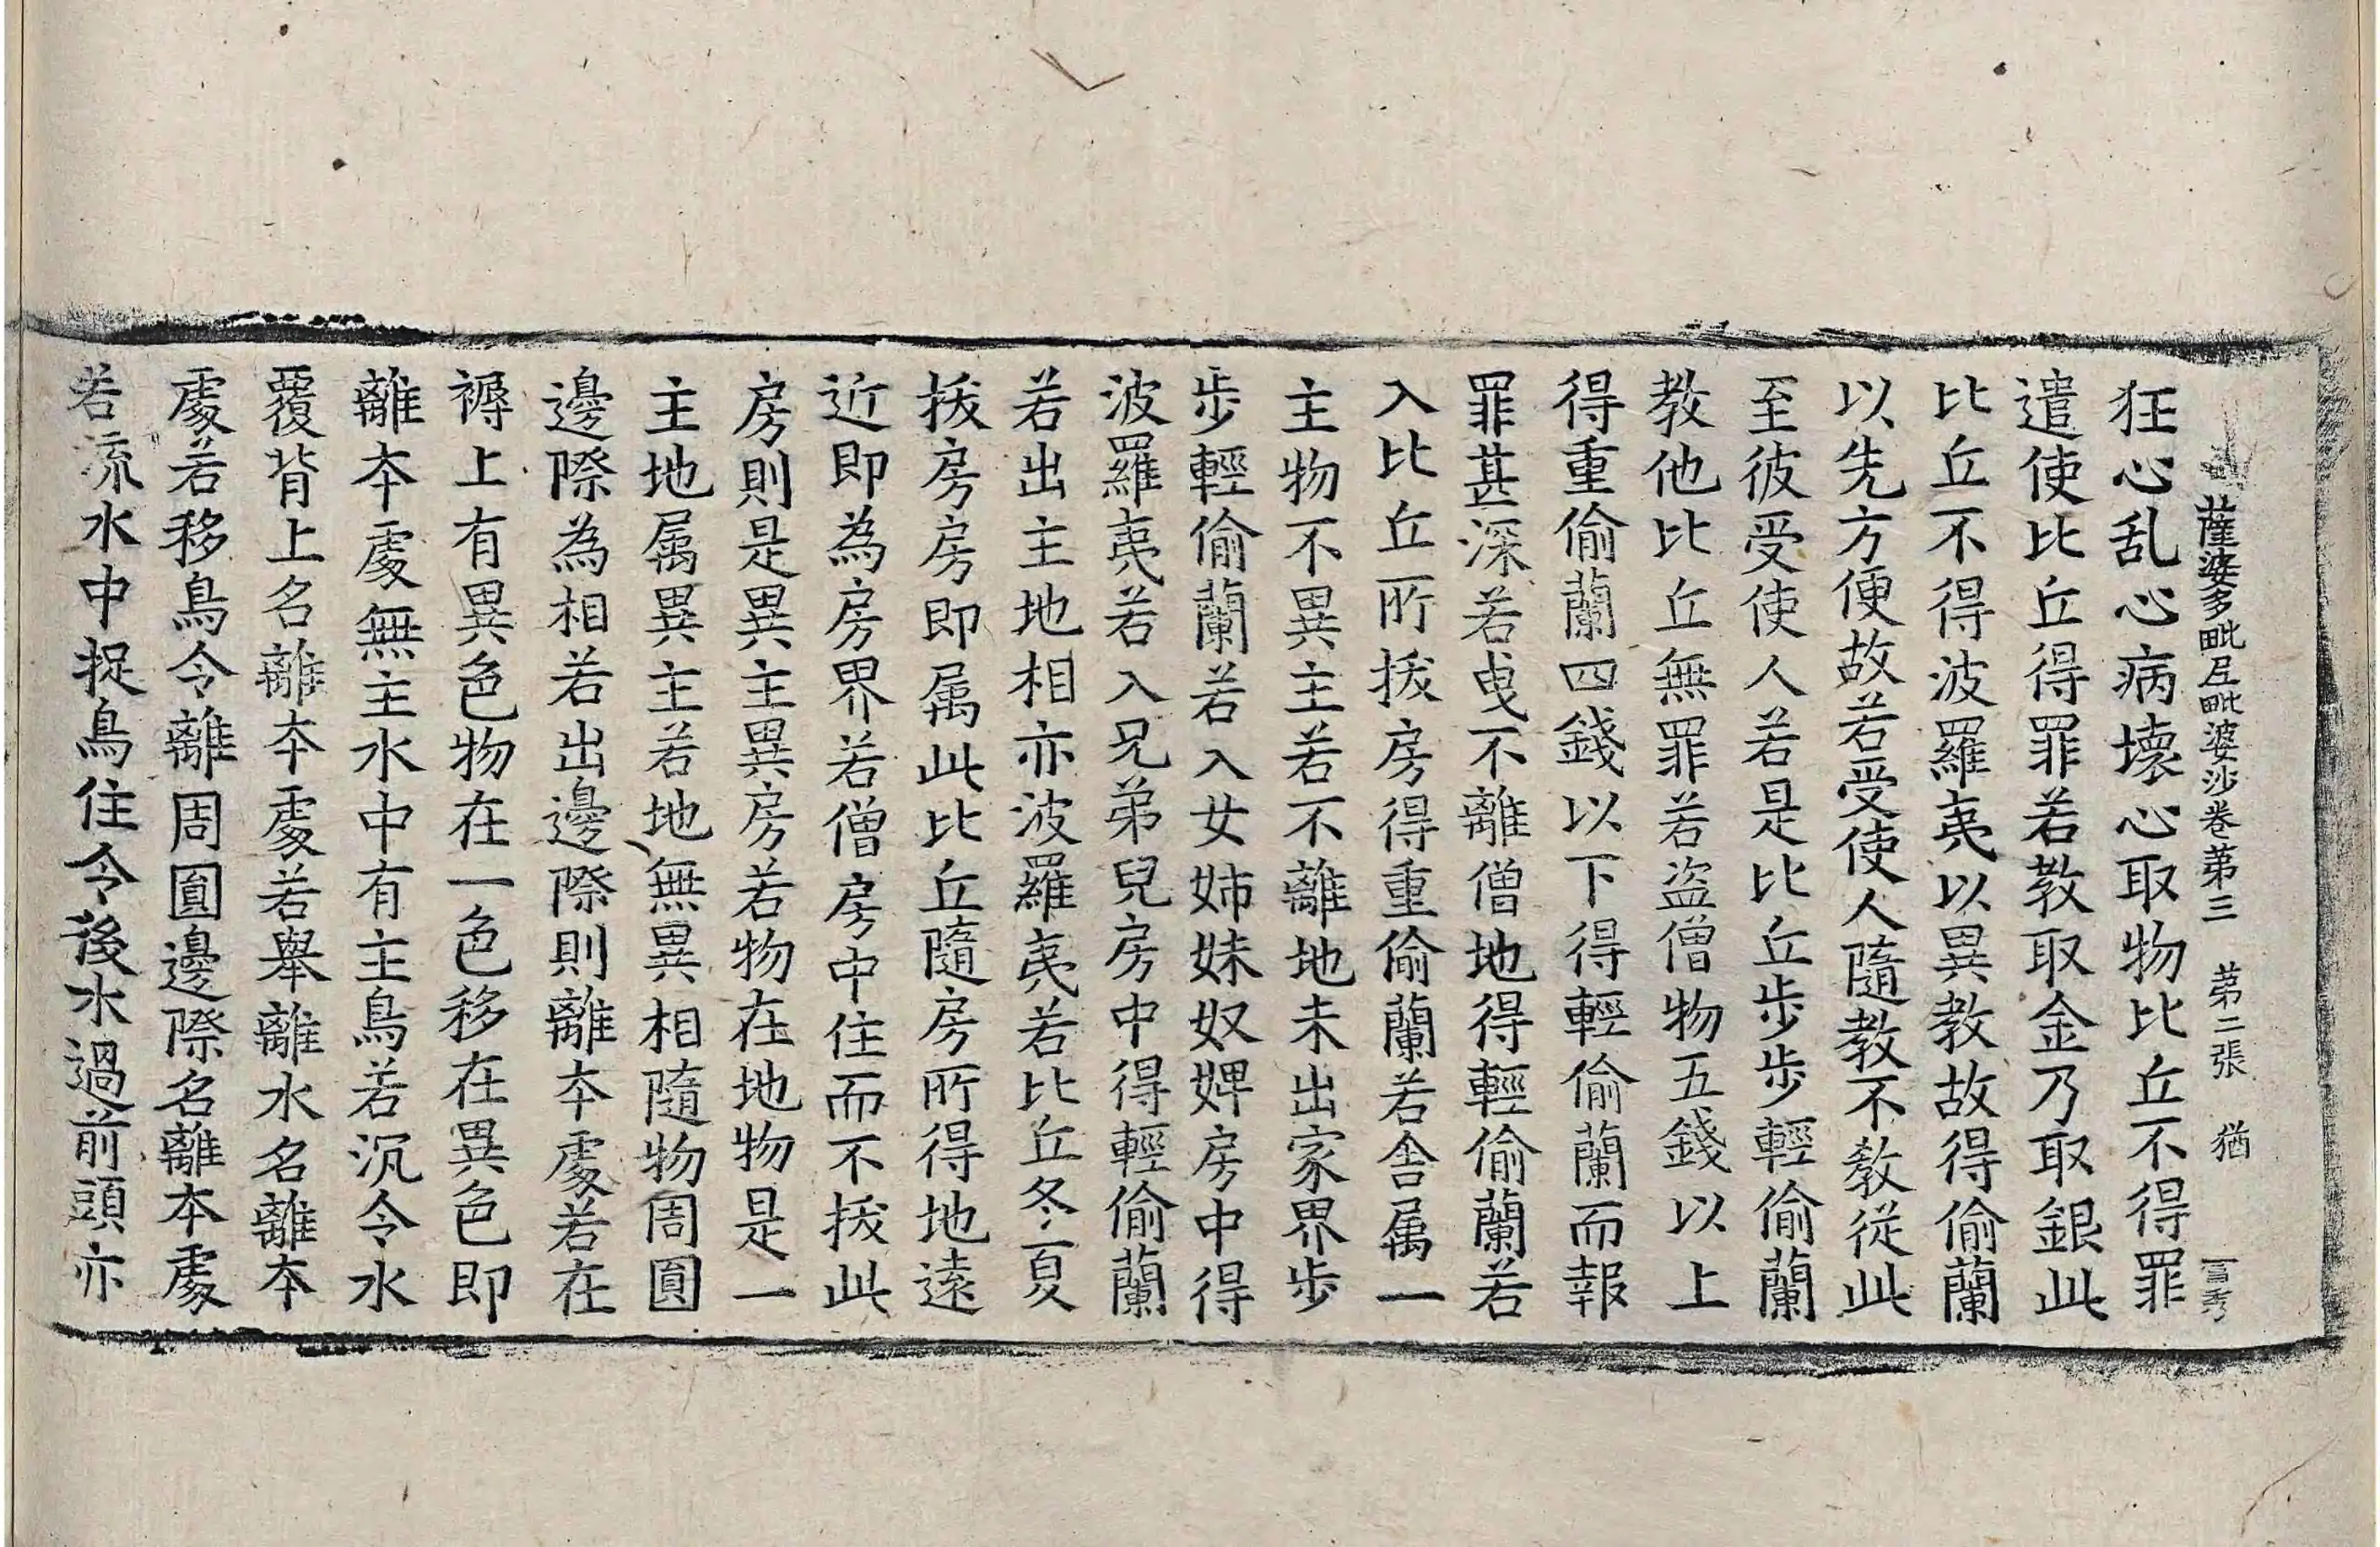 薩婆多毗尼毗婆沙卷第三 第二張 猶
狂心乱心病壞心取物比丘不得罪
遣使比丘得罪若教取金乃取銀此
比丘不得波羅夷以異教故得偷蘭
以先方便故若受使人隨教不教從此
至彼受使人若是比丘步步輕偷蘭
教他比丘無罪若盜僧物五錢以上
得重偷蘭四錢以下得輕偷蘭而報
罪甚深若曳不離僧地得輕偷蘭若
入比丘所拔房得重偷蘭若舍属一
主物不異主若不離地未出家界步
步輕偷蘭若入女姊妹奴婢房中得
波羅夷若入兄弟兒房中得輕偷蘭
若出主地相亦波羅夷若比丘冬夏
拔房房即属此比丘隨房所得地遠
近即為房界若僧房中住而不拔此
房則是異主異房若物在地物是一
主地属異主若地無異相隨物周圓
邊際為相若出邊際則離本處若在
褥上有異色物在一色移在異色即
離本處無主水中有主鳥若沉令水
覆背上名離本處若舉離水名離本
處若移鳥令離周圓邊際名離本處
若流水中捉鳥住令後水過前頭亦